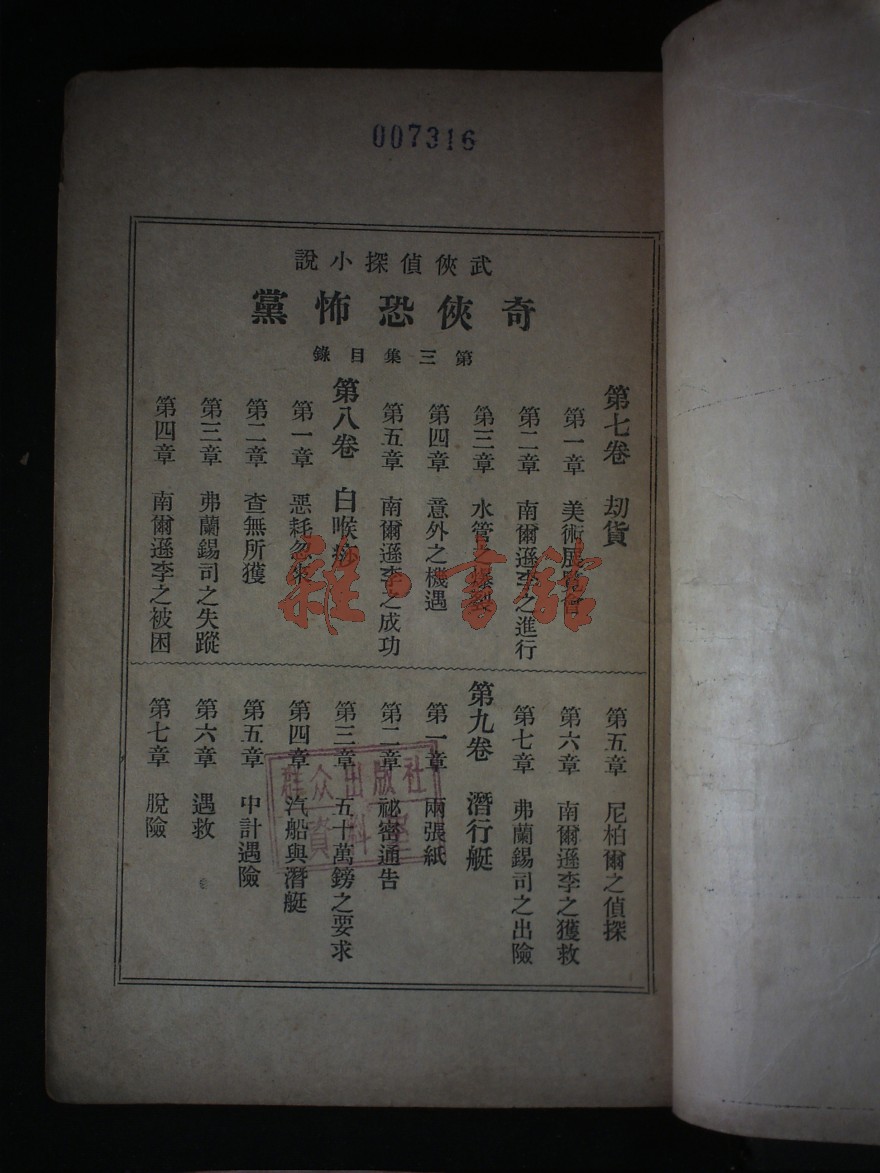 007316
武俠偵探小說
奇俠恐怖黨
第三集目錄
第七卷 刧貨
第一章 美術展覽會
第二章 南爾遜李之進行
第三章 水管之爆裂
第四章 意外之機遇
第五章 南爾遜李之成功
第八卷 白喉痧
第一章 惡耗忽來
第二章 查無所獲
第三章 弗蘭錫司之失蹤
第四章 南爾遜李之被困
第五章 尼柏爾之偵探
第六章 南爾遜李之獲救
第七章 弗蘭錫司之出險
第九卷 潛行艇
第一章 兩張紙
第二章 祕密通告
第三章 五十萬鎊之要求
第四章 汽船與潛艇
第五章 中計遇險
第六章 遇救
第七章 脫險
雜·書館
群众出版社
資料室